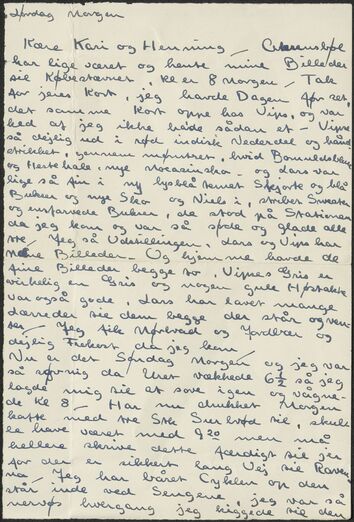 Lørdag Morgen
Kære Kari og Henning
har lige været og hente mine Billeder
til Købestævnet, Kl er 8 Morgen - Tak
for jeres Kort, jeg havde Dagen før set
det samme Kort oppe hos Vips, og var
ked af jeg ikke havde sådan et - Vips
så dejlig ud i rød indisk Nederdel og hånd
gennem mønstret, hvid Bomuldsbluse
og Hestehale, nye Mocasinsko - og Lars var
lige så fin i ny lysblå ternet Skjorte og blå
Bukser og nye Sko og Niels i stribet Sweater
og ensfarvede Bukser, de stod på Stationen
da jeg kom og var så søde og glade alle
tre. Jeg så Udstillingen, Lars og Vips har
fine Billeder - Og hjemme havde de
fine Billeder begge to, Vipses Gris er
virkelig en Gris og nogen gule Høstakke
var også gode, Lars har lavet mange
Lærreder til dem begge der står og ven-
ter, Jeg fik Mørbrad og Jordbær og
dejlig Frokost da jeg kom
Nu er det Søndag Morgen og jeg
så søvnig da Uret vækkede 6½ så jeg
lagde mig til at sove igen og vågne-
de Kl 8, Har nu drukket Morgen
kaffe med tre Stk Surbrød til, skul-
le have været med 9 20 men må
hellere skrive dette færdigt til jer
for der er sikkert lang Vej til Raven
Jeg har båret Cyklen op den
står inde ved Sengene, jeg var så
nervøs hvergang jeg kiggede til den